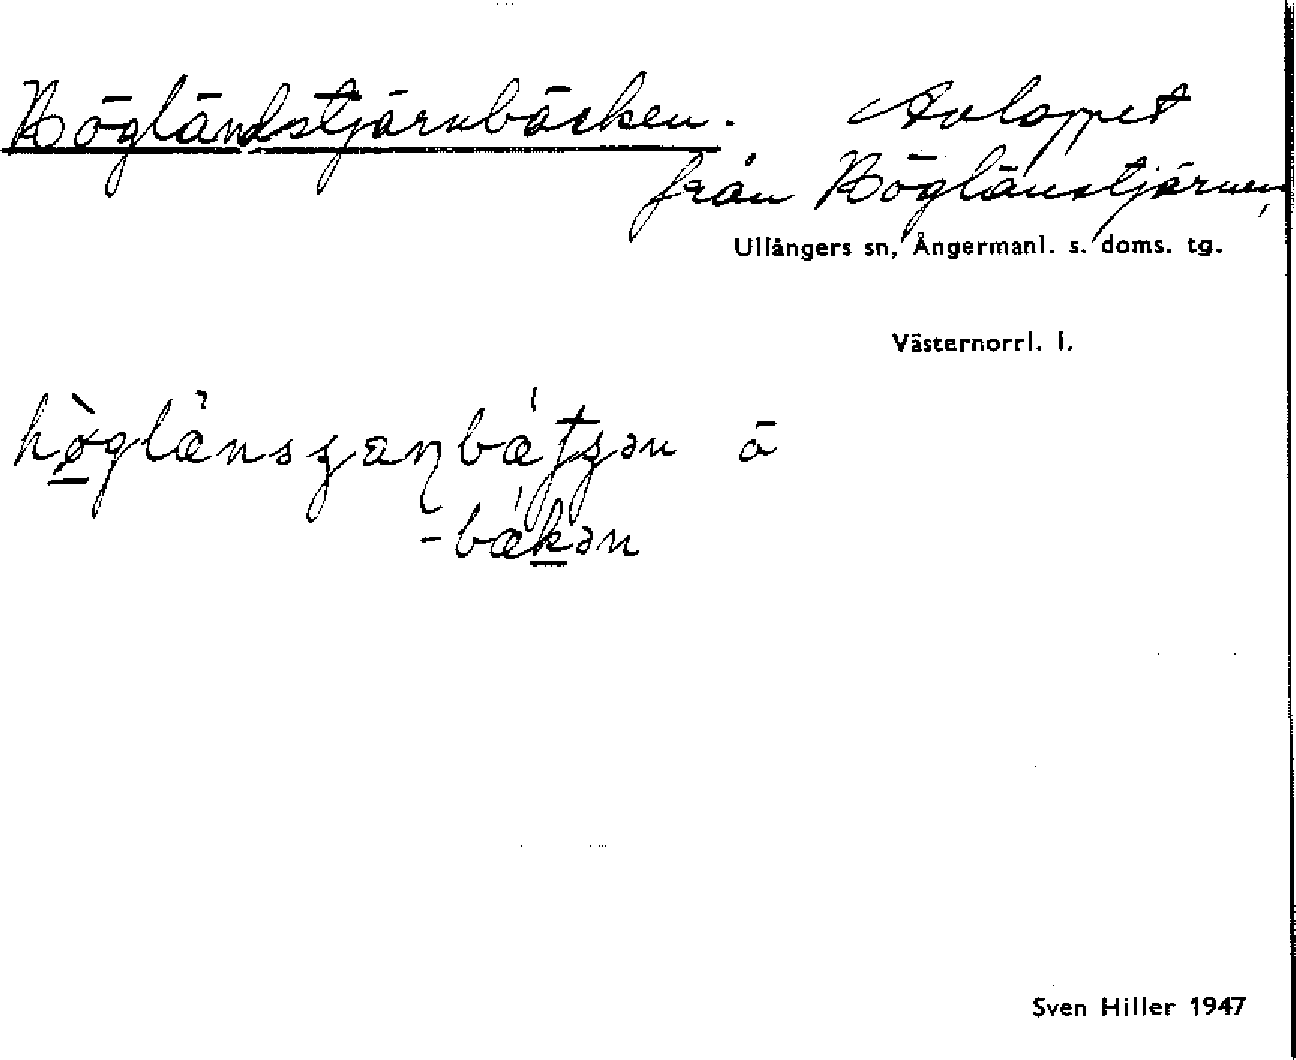 Höglandstjärnbäcken. Avloppet
från Höglanstjärnen,
Ullångers sn, Ångermanl. s. doms. tg.
Västernorrl. l.
å
Sven Hiller 1947